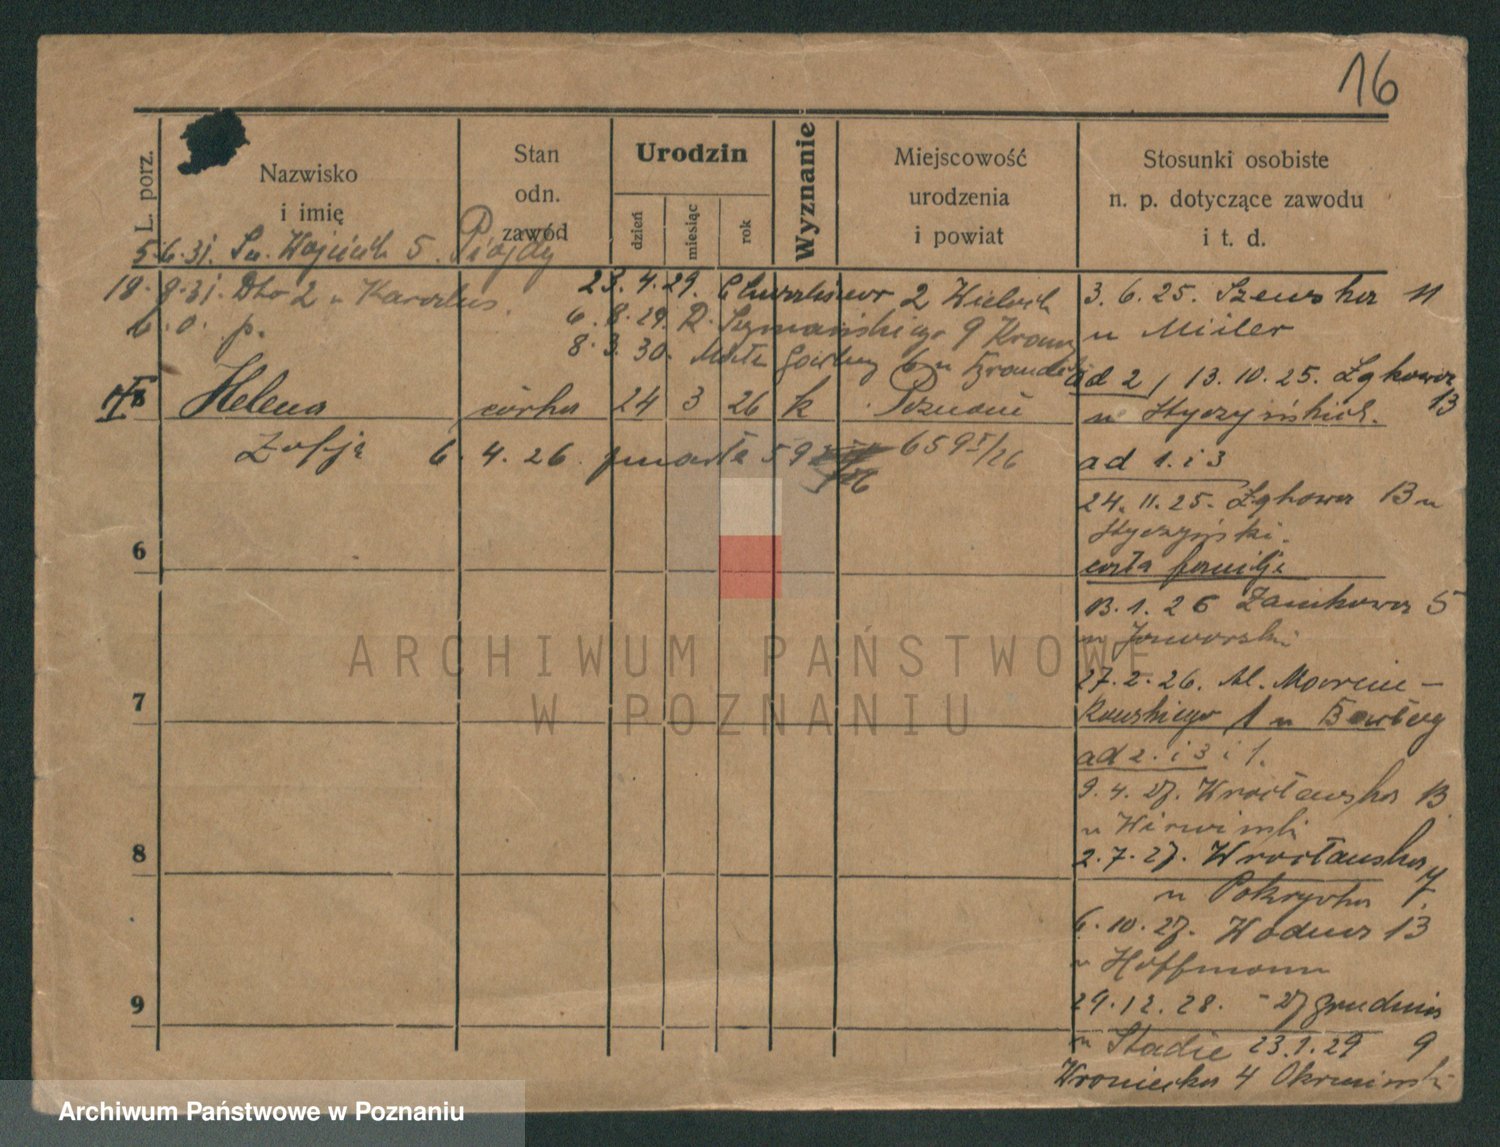 16
L. porz.
Nazwisko
i imię
Stan
odn.
zawód
Urodzin
dzień
miesiąc
rok
Wyznanie
Miejscowość
urodzenia
i powiat
Stosunki osobiste
n. p. dotyczące zawodu
i t. d.
5.6.31. Św. Wojciech 5.
18.9.31. Dto 2 u
b. o. p.
23.4.29. 2
6.8.29. R. Szymańskiego 9
8.3.30. Małe Garbary 6 u
Helena córka 24 3 26 k Poznań
Zofja 6.4.26. zmarła 659 I/26
3.6.25. Szewska 11
u Miiler
ad 2/ 13.10.25. Żydowska 13
u
ad 1. i 3
24.11.25. Żydowska 13 u
cała familja
13.1.26 Zamkowa 5
u Jaworski
27.2.26. Al. Marcin-
kowskiego 1 u
ad 2. i 3 i 1.
9.4.27. Wrocławska 13
u
2.7.27. Wrocławska 7.
u Pokrywka
6.10.27. Wodna 13
u Hoffmann
29.12.28. 27 grudnia 9
u Stadie 23.1.29
Wroniecka 4
6
7
8
9
ARCHIWUM PAŃSTWOWE
W POZNANIU
Archiwum Państwowe w Poznaniu